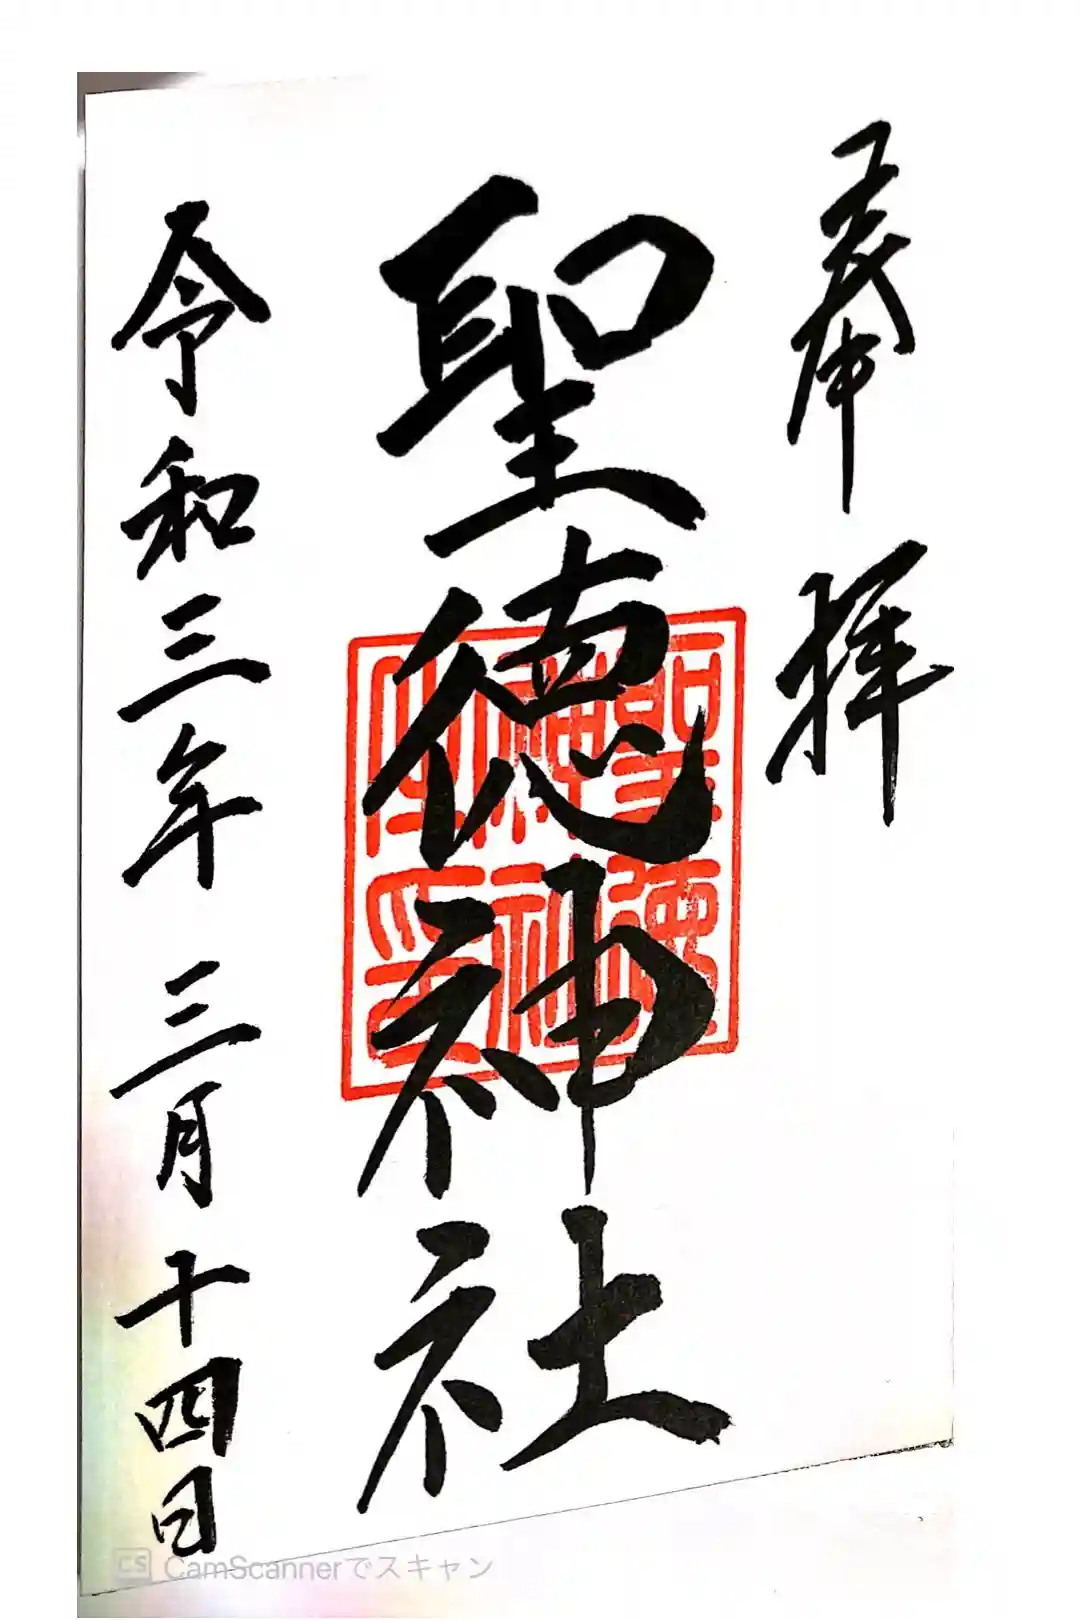 奉拝
聖徳神社
聖徳
神社
之印
令和三年 三月十四日
CS CamScannerでスキャン